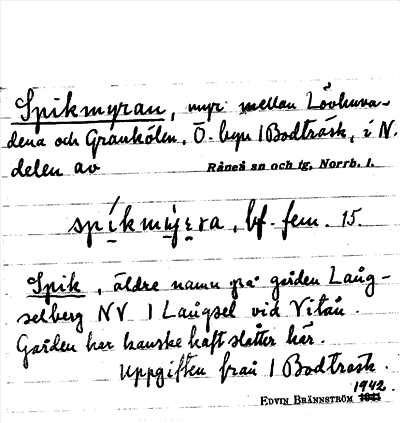 Spikmyran, myr mellan Lövhuva-
dena och Granhölen, Ö. byn 1 Bodträsk, i N.
delen av Råneå sn och tg, Norrb. l.
spíkmy̆ra, bf. fem. 15.
Spik, äldre namn på gården Lång-
selberg NV 1 Långsel vid Vitån.
Gården har kanske haft slåtter här.
Uppgiften från 1 Bodträsk.
1942.
EDVIN BRÄNNSTRÖM 1941